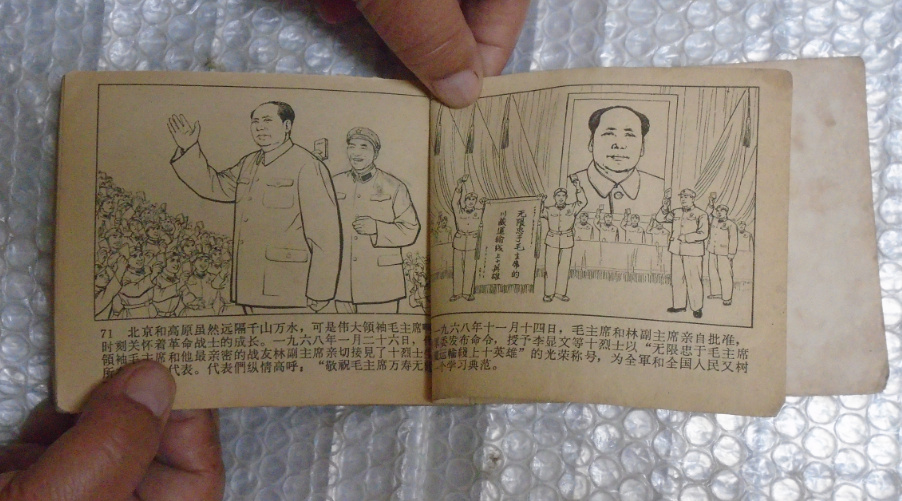 71 北京和高原虽然远隔千山万水，可是伟大领袖毛主席
时刻关怀着革命战士的成长。一九六八年一月二十六日，
领袖毛主席和他最亲密的战友林副主席亲切接見了十烈士
代表。代表們纵情高呼："敬祝毛主席万寿无
无限忠于毛主席的
川藏運輸线上十英雄
一九六八年十一月十四日，毛主席和林副主席亲自批准，
委发布命令，授予李显文等十烈士以"无限忠于毛主席
运輸线上十英雄"的光荣称号，为全軍和全国人民又树
个学习典范。